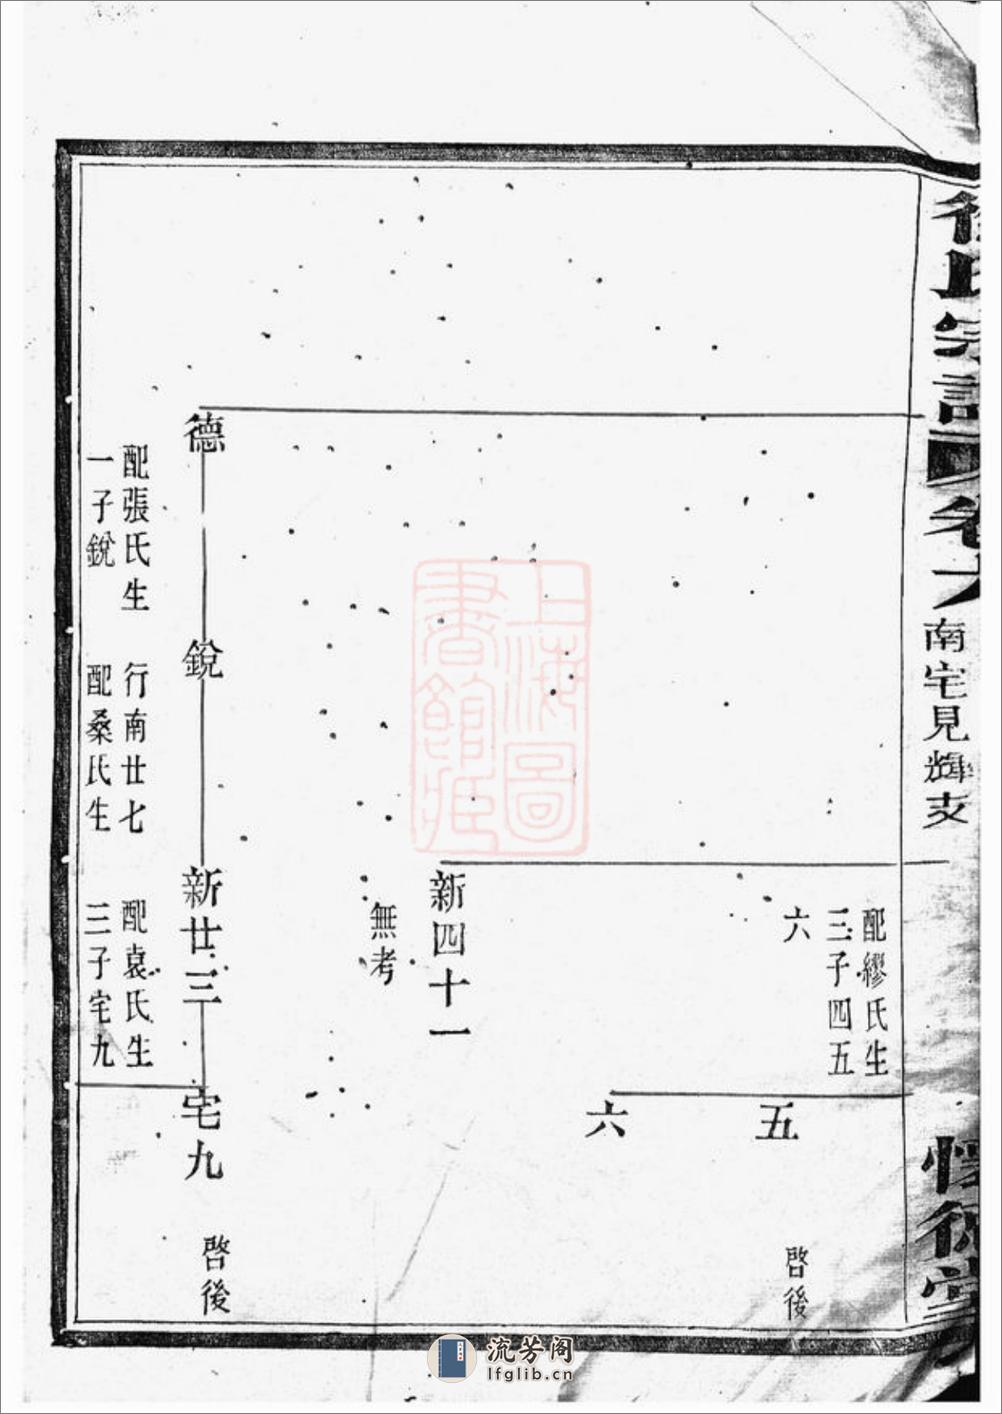 徐氏宗譜
卷六
南宅見輝支
懷德堂
配繆氏生
三子四五
六
五
啓後
六
新四十一
無考
德
配張氏生
一子銳
銳
行南廿七
配桑氏生
新廿三
配袁氏生
三子宅九
宅九
啓後
上海圖
書館藏
流芳阁
lfglib.cn